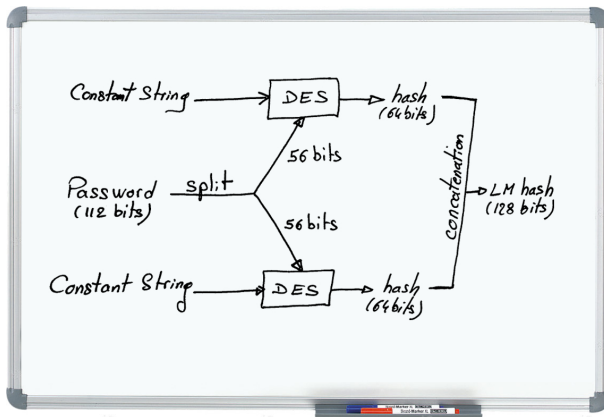 Constant String
DES
hash
(64 bits)
56 bits
Password
(112 bits)
split
56 bits
concatenation
LM hash
(128 bits)
Constant String
DES
hash
(64 bits)